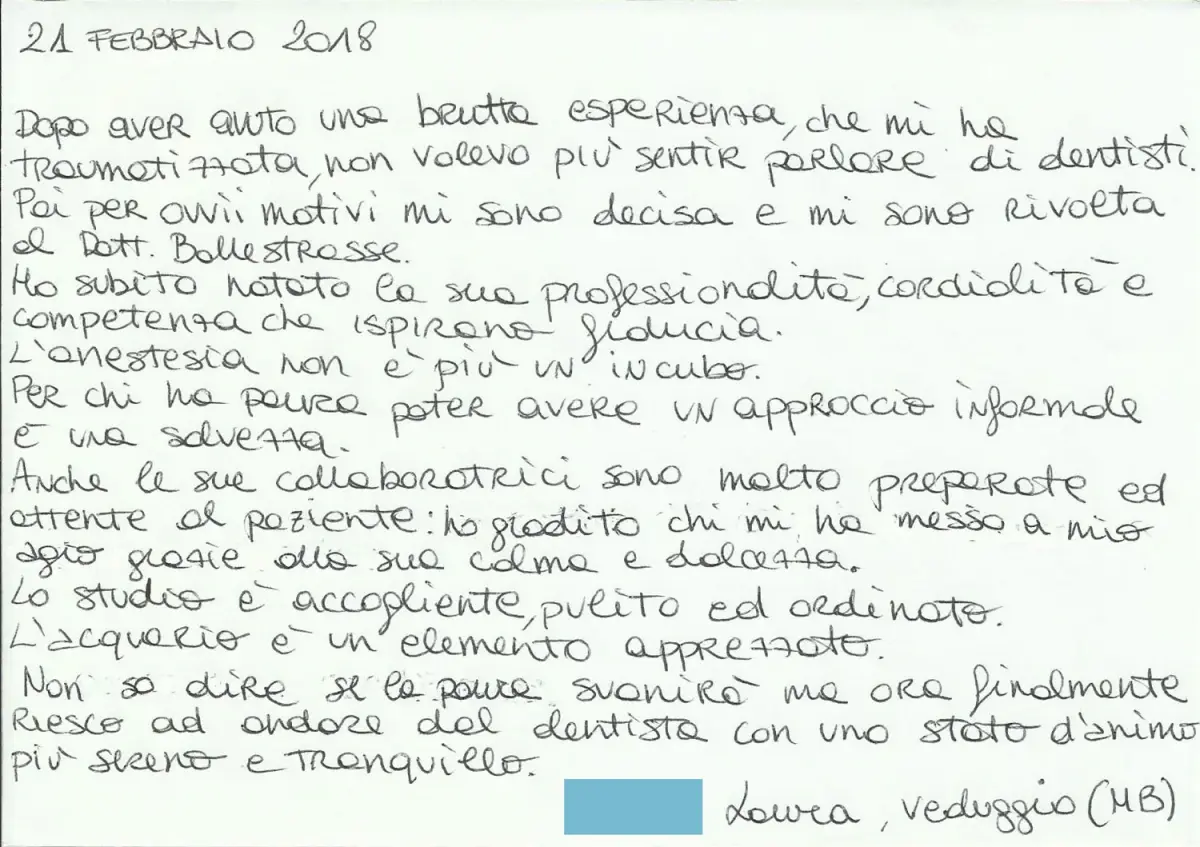 21 FEBBRAIO 2018
Dopo aver avuto una brutta esperienza, che mi ha
traumatizzata, non volevo più sentir parlare di dentisti.
Poi per ovvii motivi mi sono decisa e mi sono rivolta
al Dott. Ballestrasse.
Ho subito notato la sua professiondità, cordialità e
competenza che ispirano fiducia.
L'anestesia non è più un incubo.
Per chi ha paura poter avere un approccio informale
è una salvezza.
Anche le sue collaboratrici sono molto preparate ed
attente al paziente: ho gradito chi mi ha messo a mio
agio grazie alla sua calma e dolcezza.
Lo studio è accogliente, pulito ed ordinato.
L'acquario è un elemento apprezzato.
Non so dire se la paura svanirà ma ora finalmente
riesco ad andare dal dentista con uno stato d'animo
più sereno e tranquillo.
Laura, Veduggio (MB)